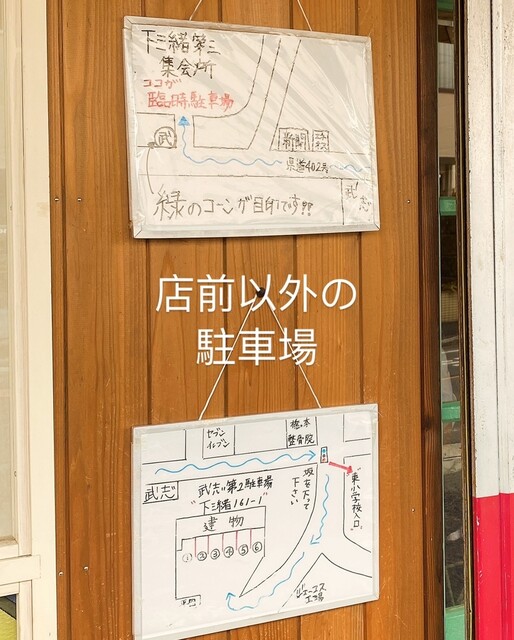 下三緒第三
集会所
ココが
臨時駐車場
武
新聞
県道402号
武志
緑のコーンが目印です!!
店前以外の
駐車場
セブン
イレブン
橋本
整骨院
武志
武志第2駐車場
"下三緒161-1"
建物
① ② ③ ④ ⑤ ⑥
坂を下って
下さい
"東小学校入口"
ジェームス
工場